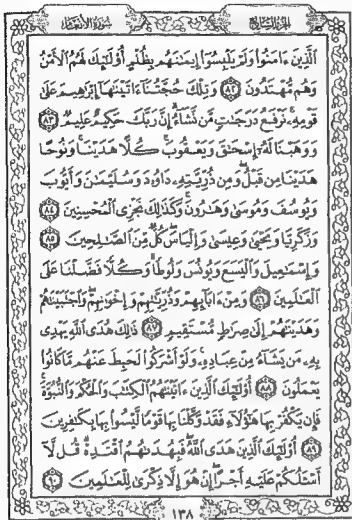 الجزء السابع سورة الأنعام
الَّذِينَ ءَامَنُوا وَلَمْ يَلْبِسُوٓا إِيمَٰنَهُم بِظُلْمٍ أُو۟لَٰٓئِكَ لَهُمُ الْأَمْنُ
وَهُم مُّهْتَدُونَ ٨٢ وَتِلْكَ حُجَّتُنَآ ءَاتَيْنَٰهَآ إِبْرَٰهِيمَ عَلَىٰ
قَوْمِهِۦ نَرْفَعُ دَرَجَٰتٍ مَّن نَّشَآءُ إِنَّ رَبَّكَ حَكِيمٌ عَلِيمٌ ٨٣
وَوَهَبْنَا لَهُۥٓ إِسْحَٰقَ وَيَعْقُوبَ كُلًّا هَدَيْنَا وَنُوحًا
هَدَيْنَا مِن قَبْلُ وَمِن ذُرِّيَّتِهِۦ دَاوُۥدَ وَسُلَيْمَٰنَ وَأَيُّوبَ
وَيُوسُفَ وَمُوسَىٰ وَهَٰرُونَ وَكَذَٰلِكَ نَجْزِى الْمُحْسِنِينَ ٨٤
وَزَكَرِيَّا وَيَحْيَىٰ وَعِيسَىٰ وَإِلْيَاسَ كُلٌّ مِّنَ الصَّٰلِحِينَ ٨٥
وَإِسْمَٰعِيلَ وَالْيَسَعَ وَيُونُسَ وَلُوطًا وَكُلًّا فَضَّلْنَا عَلَى
الْعَٰلَمِينَ ٨٦ وَمِنْ ءَابَآئِهِمْ وَذُرِّيَّٰتِهِمْ وَإِخْوَٰنِهِمْ وَاجْتَبَيْنَٰهُمْ
وَهَدَيْنَٰهُمْ إِلَىٰ صِرَٰطٍ مُّسْتَقِيمٍ ٨٧ ذَٰلِكَ هُدَى اللَّهِ يَهْدِى
بِهِۦ مَن يَشَآءُ مِنْ عِبَادِهِۦ وَلَوْ أَشْرَكُوا لَحَبِطَ عَنْهُم مَّا كَانُوا
يَعْمَلُونَ ٨٨ أُو۟لَٰٓئِكَ الَّذِينَ ءَاتَيْنَٰهُمُ الْكِتَٰبَ وَالْحُكْمَ وَالنُّبُوَّةَ
فَإِن يَكْفُرْ بِهَا هَٰٓؤُلَآءِ فَقَدْ وَكَّلْنَا بِهَا قَوْمًا لَّيْسُوا بِهَا بِكَٰفِرِينَ
٨٩ أُو۟لَٰٓئِكَ الَّذِينَ هَدَى اللَّهُ فَبِهُدَىٰهُمُ اقْتَدِهْ قُل لَّآ
أَسْـَٔلُكُمْ عَلَيْهِ أَجْرًا إِنْ هُوَ إِلَّا ذِكْرَىٰ لِلْعَٰلَمِينَ ٩٠
١٣٨